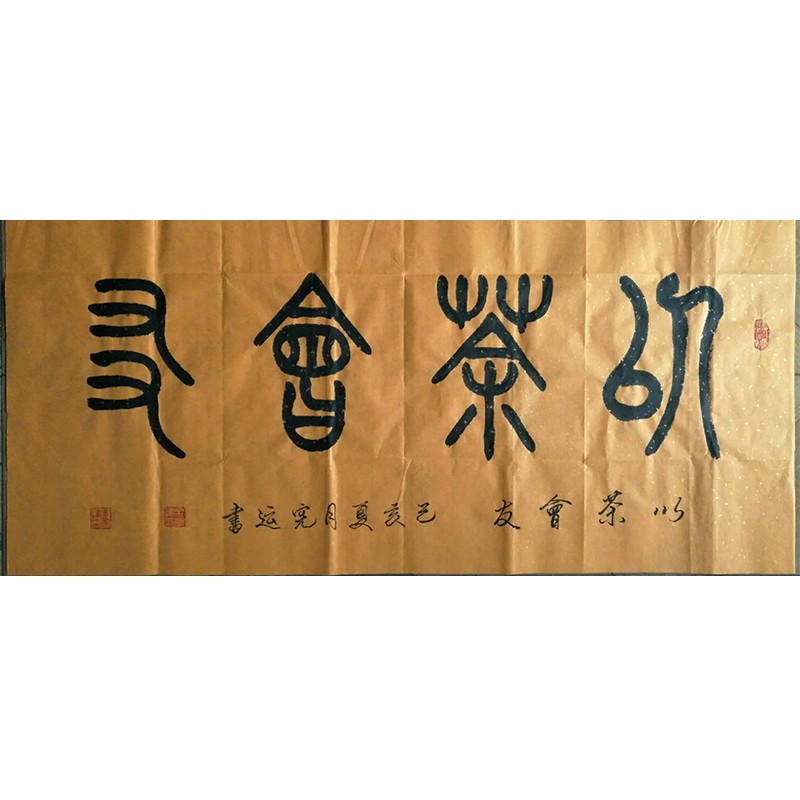 以茶會友
以茶會友 己亥夏月宪运書